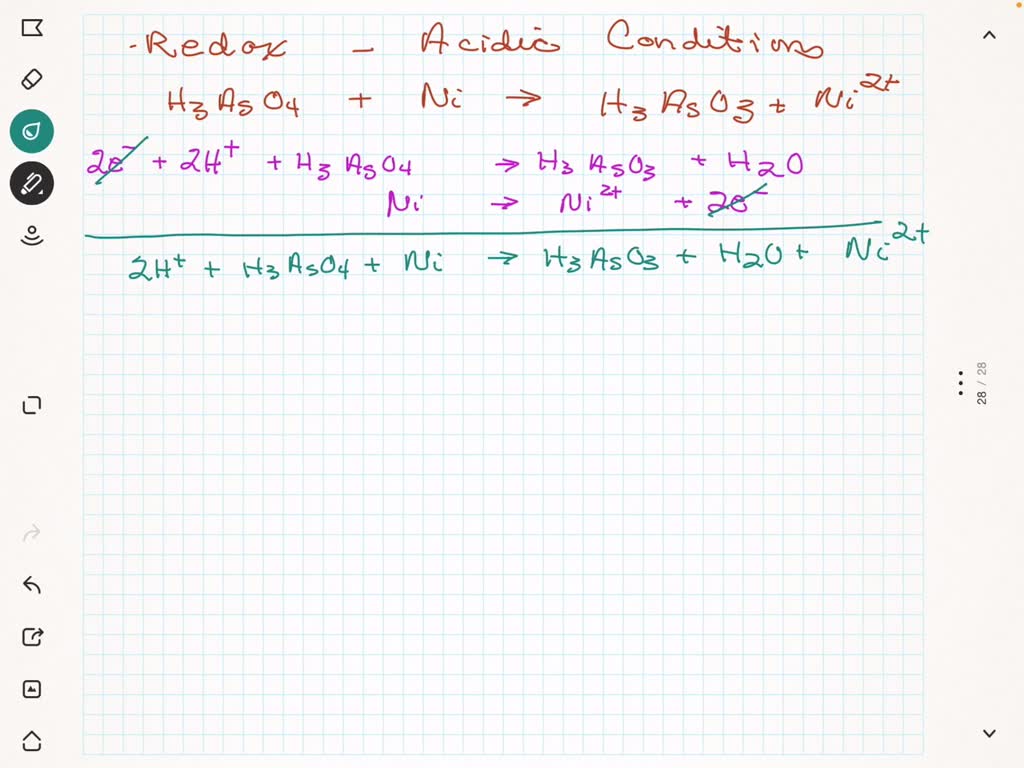 - Redox - Acidic Conditions
H₃AsO₄ + Ni → H₃AsO₃ + Ni²⁺
2e⁻ + 2H⁺ + H₃AsO₄ → H₃AsO₃ + H₂O
Ni → Ni²⁺ + 2e⁻
2H⁺ + H₃AsO₄ + Ni → H₃AsO₃ + H₂O + Ni²⁺
28 / 28